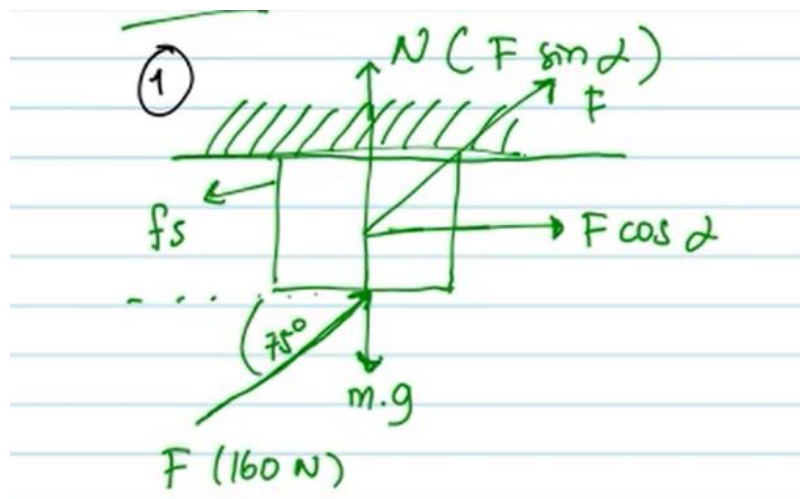 1
N (F sin α)
F
fs
F cos α
75°
m.g
F (160 N)